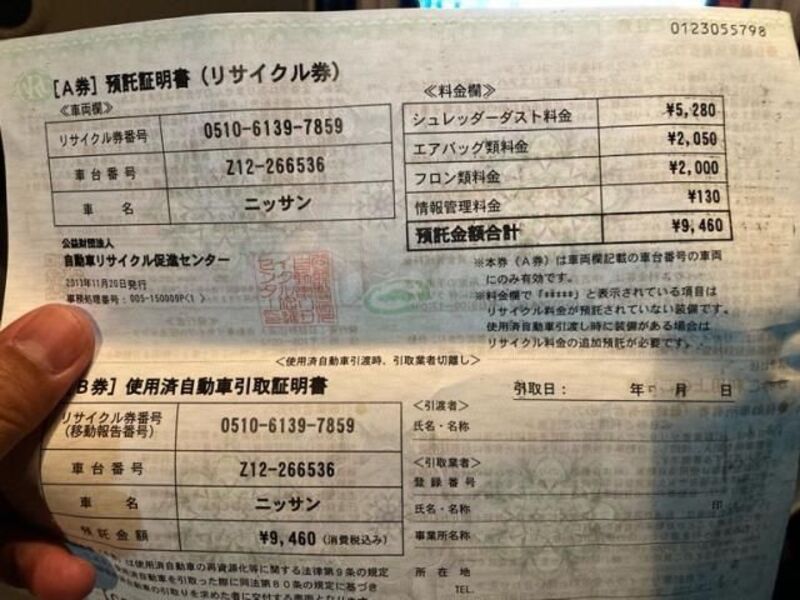 0123055798
[A券] 預託証明書（リサイクル券）
≪車両欄≫
リサイクル券番号 0510-6139-7859
車台番号 Z12-266536
車 名 ニッサン
≪料金欄≫
シュレッダーダスト料金 ¥5,280
エアバッグ類料金 ¥2,050
フロン類料金 ¥2,000
情報管理料金 ¥130
預託金額合計 ¥9,460
公益財団法人
自動車リサイクル促進センター
2013年11月20日発行
事務処理番号：005-150009P(1 )
※本券（A券）は車両欄記載の車台番号の車両
にのみ有効です。
※料金欄で『*****』と表示されている項目は
リサイクル料金が預託されていない装備です。
使用済自動車引渡し時に装備がある場合は
リサイクル料金の追加預託が必要です。
<使用済自動車引渡時、引取業者切離し>
B券] 使用済自動車引取証明書
リサイクル券番号 0510-6139-7859
(移動報告番号)
車台番号 Z12-266536
車 名 ニッサン
預託金額 ¥9,460 (消費税込み)
引取日： 年 月 日
<引渡者>
氏名・名称
<引取業者>
登録番号
氏名・名称 印
事業所名称
所在地
TEL.
は使用済自動車の再資源化等に関する法律第9条の規定
自動車を引取った際に同法第80条の規定に基づき
自動車の引取りを求めた者に交付する書面となります